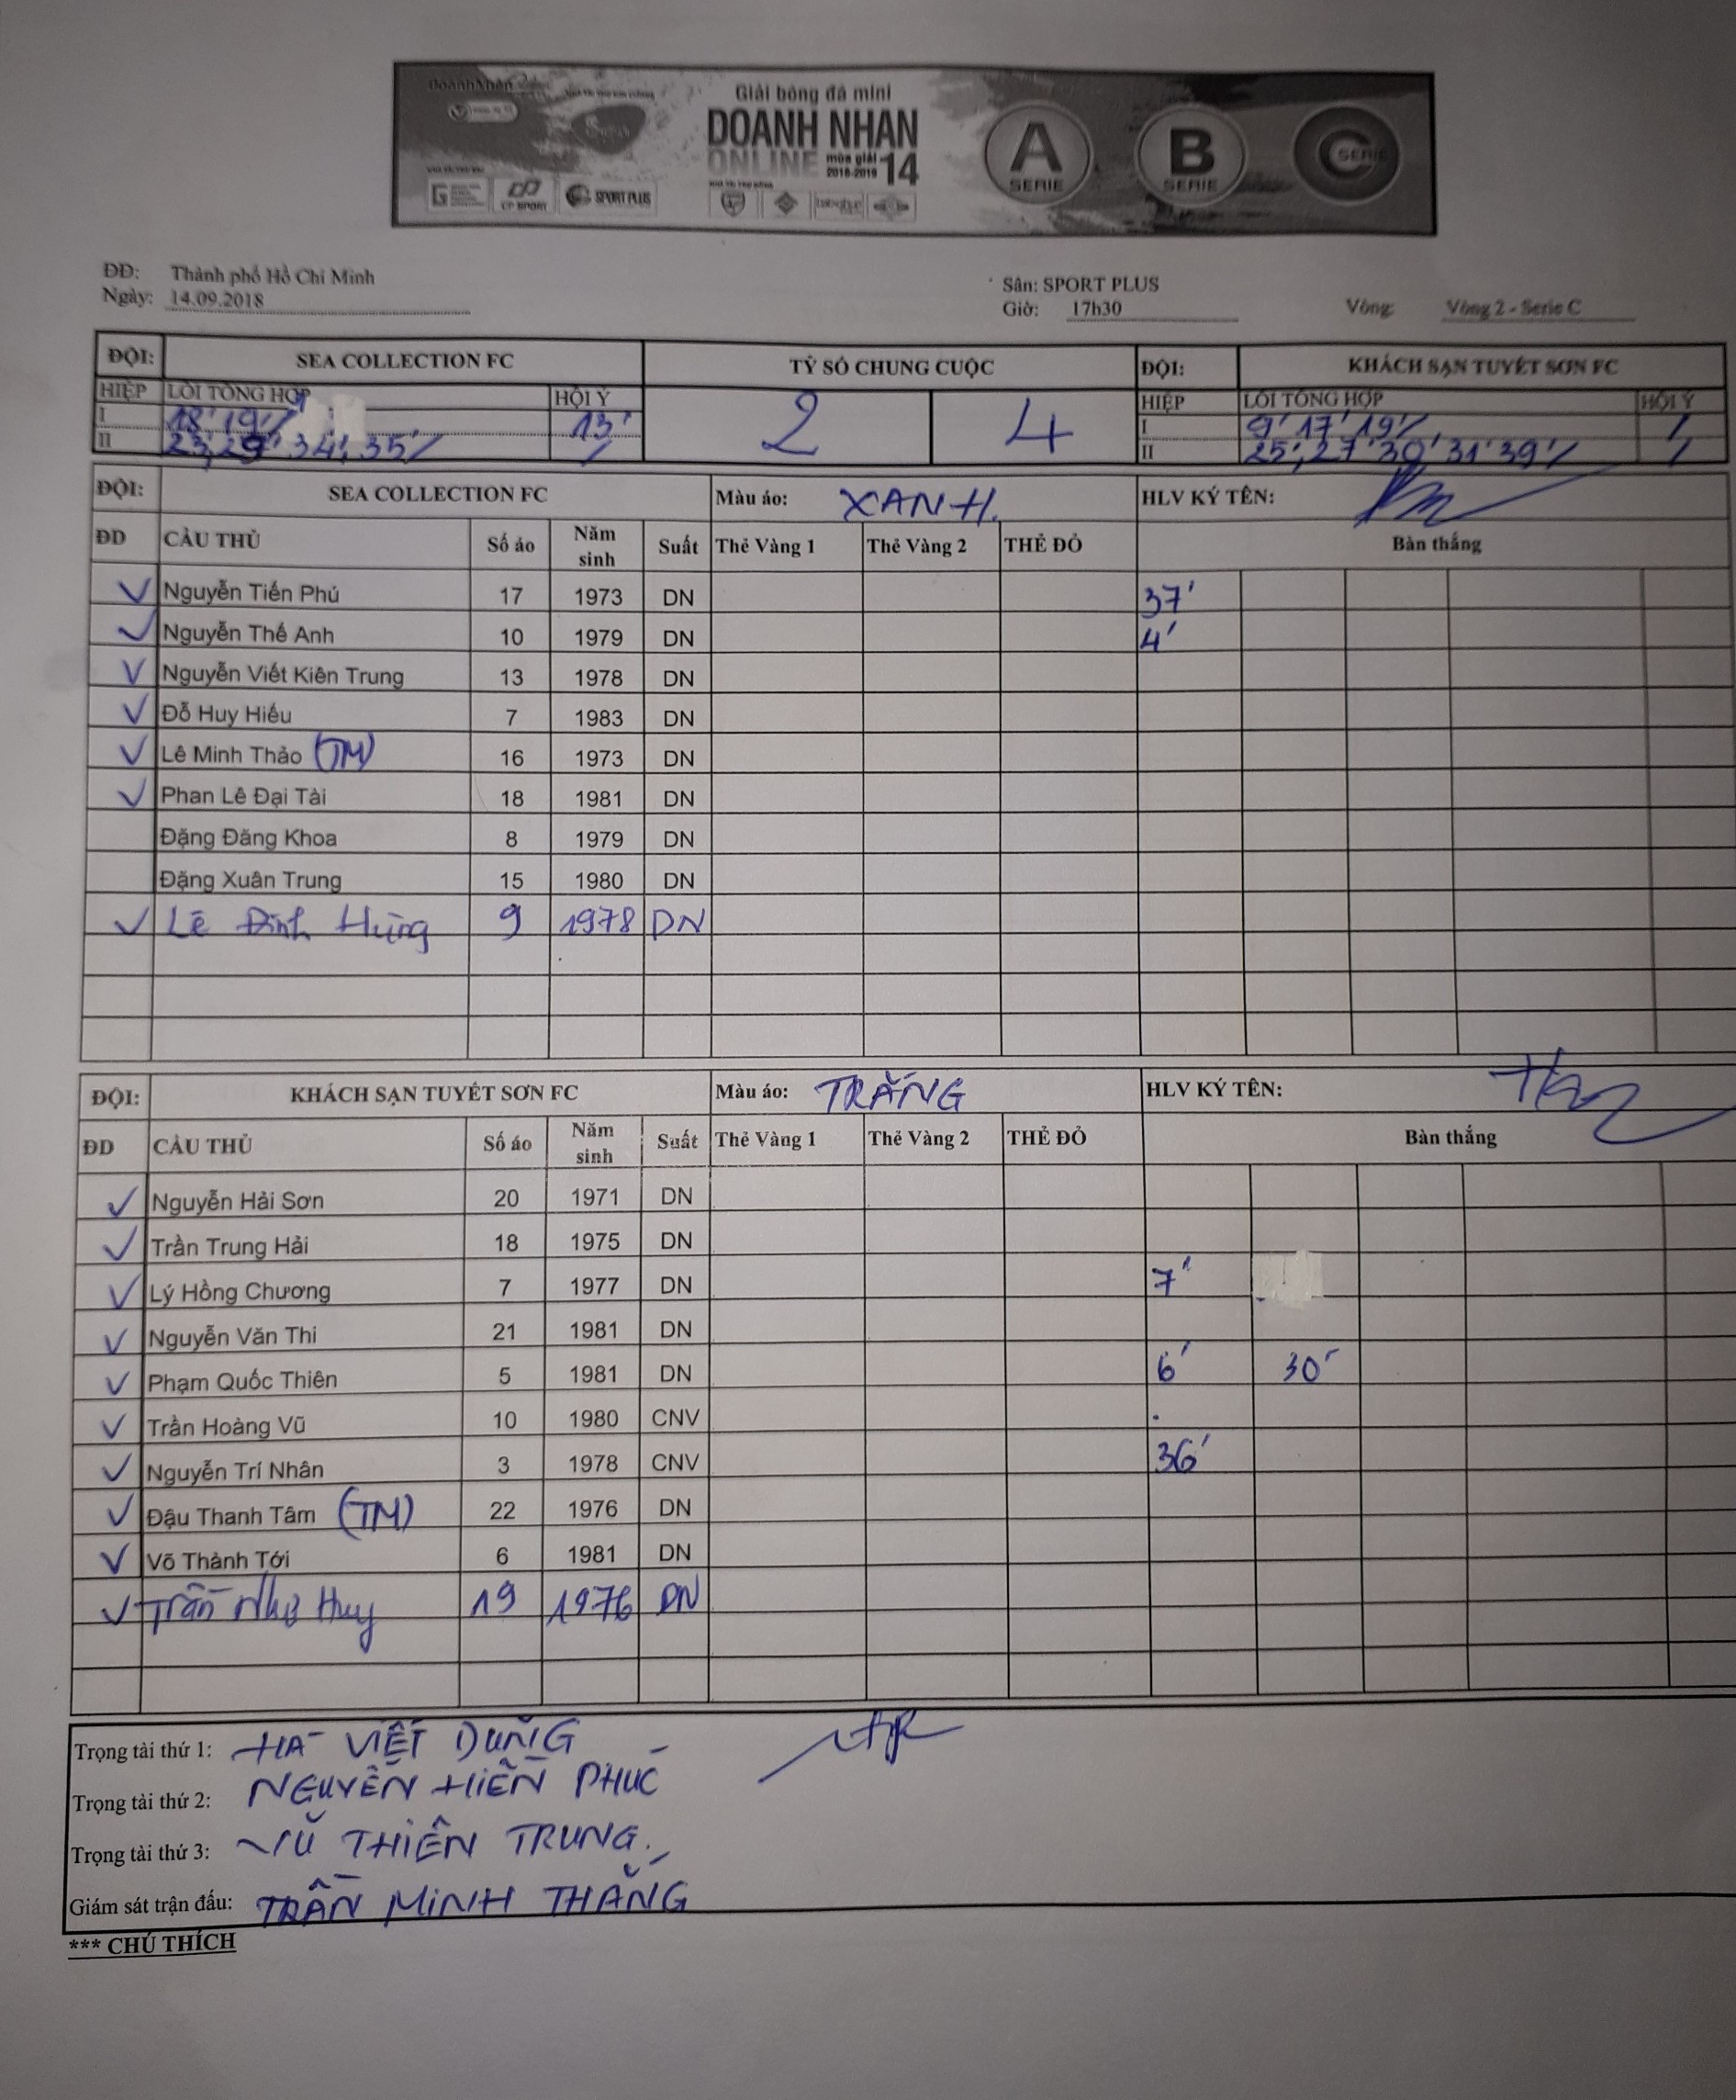 Giải bóng đá mini
DOANH NHAN
ONLINE mùa giải 2018-2019 14
A SERIE B SERIE C SERIE
CP SPORT SPORT PLUS
ĐĐ: Thành phố Hồ Chí Minh Sân: SPORT PLUS
Ngày: 14.09.2018 Giờ: 17h30 Vòng: Vòng 2 - Serie C
ĐỘI: SEA COLLECTION FC TỶ SỐ CHUNG CUỘC ĐỘI: KHÁCH SẠN TUYẾT SƠN FC
HIỆP LỖI TỔNG HỢP HỘI Ý 2 4 HIỆP LỖI TỔNG HỢP HỘI Ý
I 18' 19'/ 13' I 9' 17' 19'/ /
II 23', 29' 34', 35'/ / II 25', 27' 30' 31' 39'/ /
ĐỘI: SEA COLLECTION FC Màu áo: XANH. HLV KÝ TÊN:
ĐD CẦU THỦ Số áo Năm sinh Suất Thẻ Vàng 1 Thẻ Vàng 2 THẺ ĐỎ Bàn thắng
V Nguyễn Tiến Phú 17 1973 DN 37'
V Nguyễn Thế Anh 10 1979 DN 4'
V Nguyễn Viết Kiên Trung 13 1978 DN
V Đỗ Huy Hiếu 7 1983 DN
V Lê Minh Thảo (TM) 16 1973 DN
V Phan Lê Đại Tài 18 1981 DN
Đặng Đăng Khoa 8 1979 DN
Đặng Xuân Trung 15 1980 DN
V Lê Đình Hùng 9 1978 DN
ĐỘI: KHÁCH SẠN TUYẾT SƠN FC Màu áo: TRẮNG HLV KÝ TÊN:
ĐD CẦU THỦ Số áo Năm sinh Suất Thẻ Vàng 1 Thẻ Vàng 2 THẺ ĐỎ Bàn thắng
V Nguyễn Hải Sơn 20 1971 DN
V Trần Trung Hải 18 1975 DN
V Lý Hồng Chương 7 1977 DN 7'
V Nguyễn Văn Thi 21 1981 DN
V Phạm Quốc Thiên 5 1981 DN 6' 30'
V Trần Hoàng Vũ 10 1980 CNV
V Nguyễn Trí Nhân 3 1978 CNV 36'
V Đậu Thanh Tâm (TM) 22 1976 DN
V Võ Thành Tới 6 1981 DN
V Trần Như Huy 19 1976 DN
Trọng tài thứ 1: HÀ VIẾT DŨNG
Trọng tài thứ 2: NGUYỄN HIỀN PHÚC
Trọng tài thứ 3: VŨ THIÊN TRUNG.
Giám sát trận đấu: TRẦN MINH THẮNG
*** CHÚ THÍCH